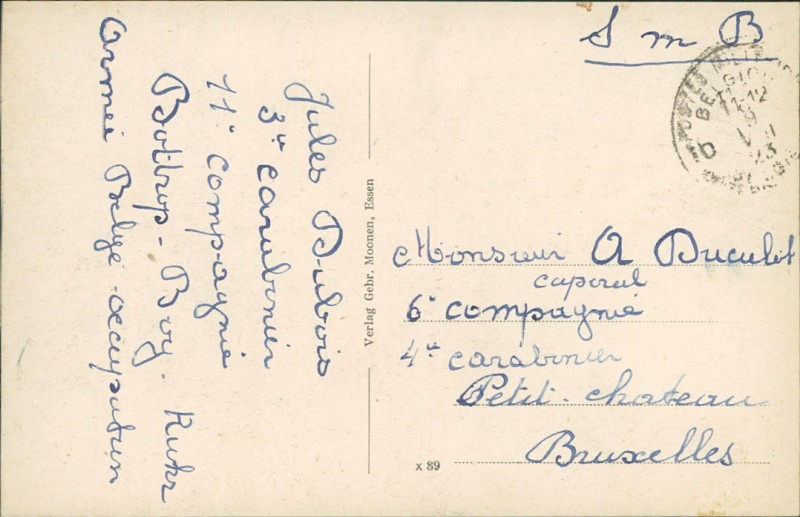 S m B
POSTES MILIT
BELGI
11-12
23
b
Jules Dubois
3e carabinier
11e compagnie
Bottrop - Boy. Ruhr
Armée Belge occupation
Verlag Gebr. Moonen, Essen
Monsieur A Duculot
caporal
6e compagnie
4e carabinier
Petit-chateau
Bruxelles
x 89